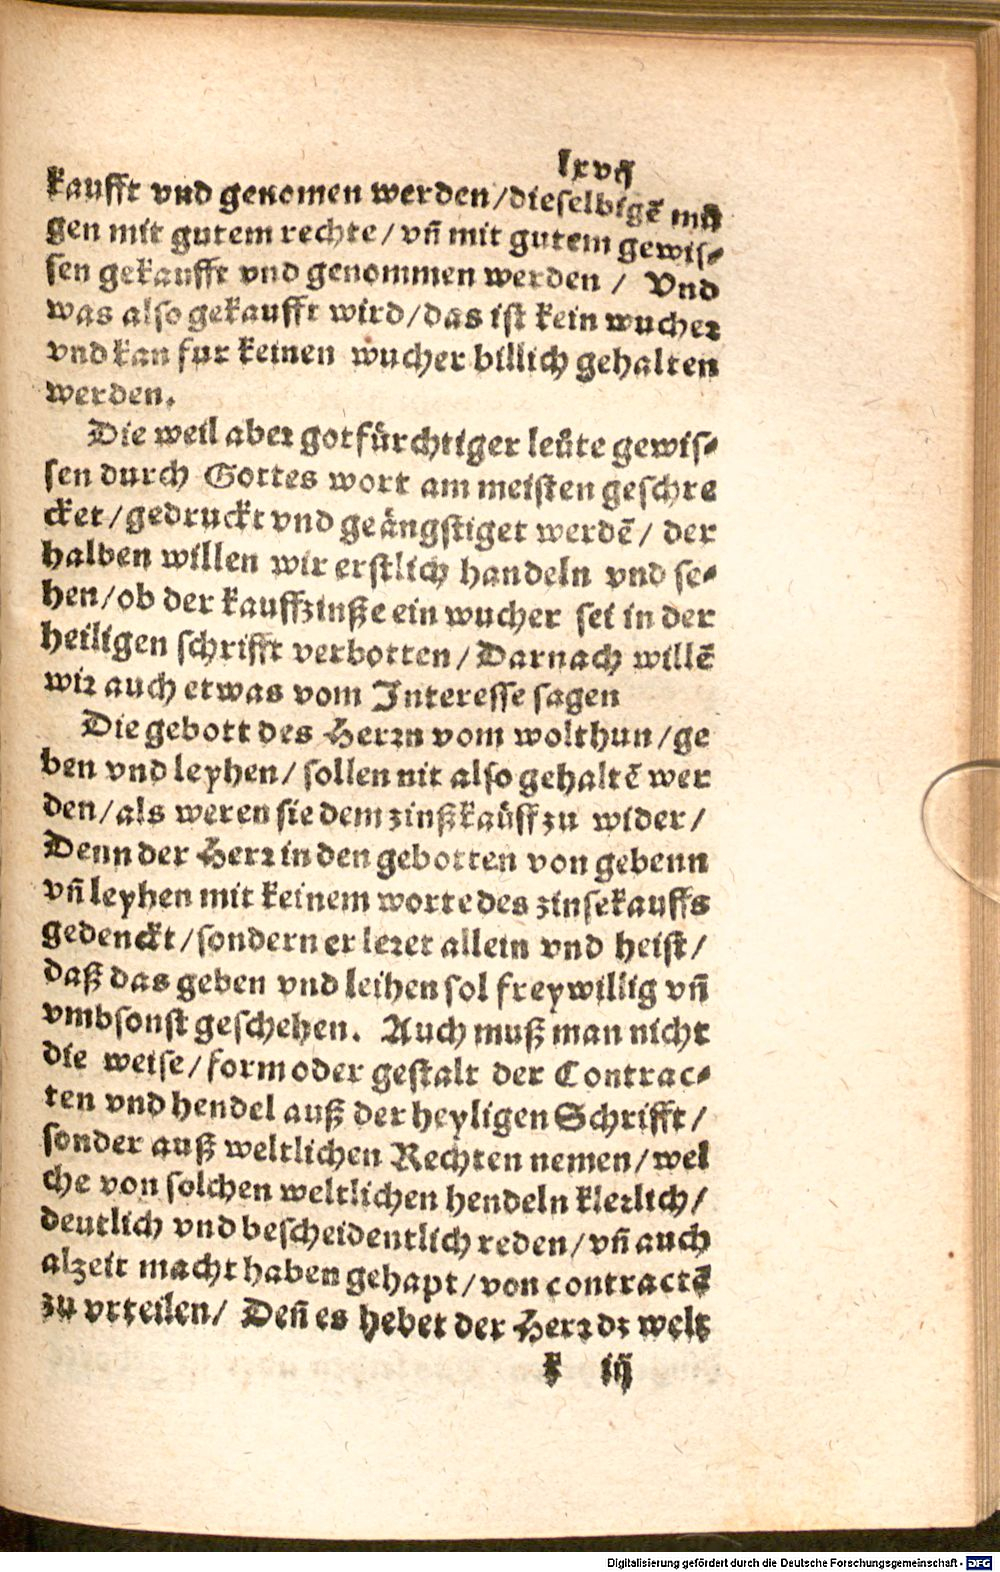 lxvij
kaufft vnd genomen werden/dieselbigē mü
gen mit gutem rechte/vñ mit gutem gewis⸗
sen gekaufft vnd genommen werden / Vnd
was also gekaufft wird/das ist kein wucher
vnd kan fur keinen wucher billich gehalten
werden.
Die weil aber gotfürchtiger leůte gewis⸗
sen durch Gottes wort am meisten geschre
cket/gedruckt vnd geängstiget werdē/ der
halben willen wir erstlich handeln vnd se⸗
hen/ob der kauffzinße ein wucher sei in der
heiligen schrifft verbotten/Darnach willē
wir auch etwas vom Interesse sagen
Die gebott des Herrn vom wolthun/ge
ben vnd leyhen/ sollen nit also gehaltē wer
den/als weren sie dem zinßkaüff zu wider/
Denn der Herr in den gebotten von gebenn
vñ leyhen mit keinem worte des zinsekauffs
gedenckt/sondern er leret allein vnd heist/
daß das geben vnd leihen sol freywillig vñ
vmbsonst geschehen. Auch muß man nicht
die weise/form oder gestalt der Contrac⸗
ten vnd hendel auß der heyligen Schrifft/
sonder auß weltlichen Rechten nemen/wel
che von solchen weltlichen hendeln klerlich/
deutlich vnd bescheidentlich reden/vñ auch
alzeit macht haben gehapt/von contractē
zu vrteilen/ Deñ es hebet der Herr dz welt
k iij
Digitalisierung gefördert durch die Deutsche Forschungsgemeinschaft - DFG